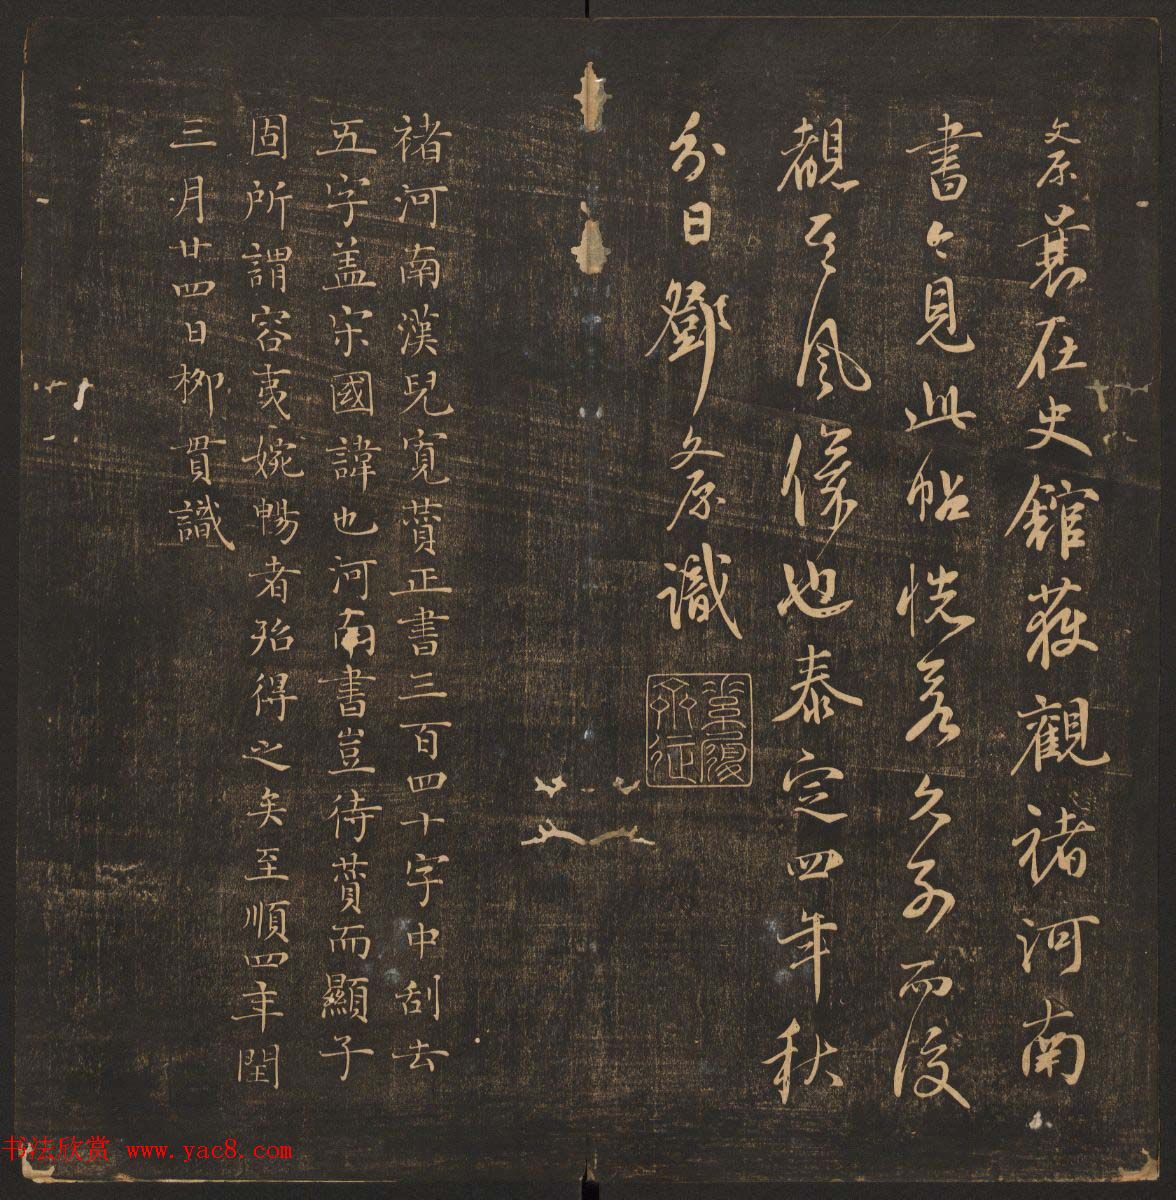 文原曩在史館獲觀褚河南
書今見此帖恍若久別而復
覩其風儀也泰定四年秋
分日鄧文原識
褚河南漢兒寬贊正書三百四十字中刮去
五字盖宋國諱也河南書豈待贊而顯子
固所謂容夷婉暢者殆得之矣至順四年閏
三月廿四日栁貫識
书法欣赏 www.yac8.com